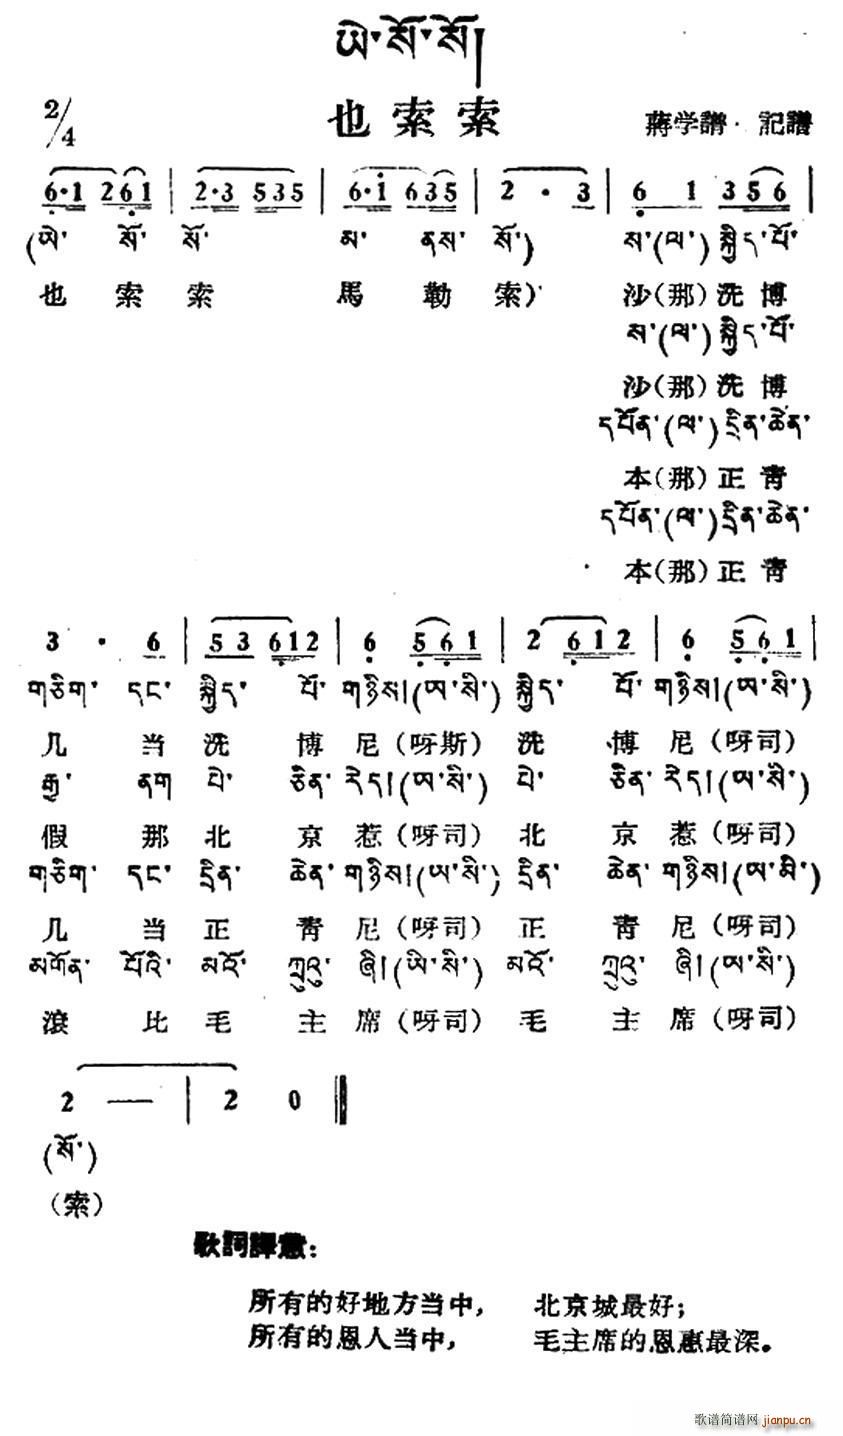 ཡེ་སོ་སོ།
2/4
也索索
蔣学譜·記譜
6·1 2 6 1 | 2·3 5 3 5 | 6·i 6 3 5 | 2 · 3 | 6 1 3 5 6 |
(ཨེ་ སོ་ སོ་ མ་ ནས་ སོ་) ས་(ལ་)སྐྱིད་པོ་
也索索 馬勒索) 沙(那)洗博
ས་(ལ་)སྐྱིད་པོ་
沙(那)洗博
དཔོན་(ལ་)དྲིན་ཆེན་
本(那)正青
དཔོན་(ལ་)དྲིན་ཆེན་
本(那)正青
3 · 6 | 5 3 6 1 2 | 6 5 6 1 | 2 6 1 2 | 6 5 6 1 |
གཅིག་ དང་ སྐྱིད་ པོ་ གཉིས།(ཨ་སི་) སྐྱིད་ པོ་ གཉིས།(ཨ་སི་)
几当洗博尼(呀斯)洗博尼(呀司)
རྒྱ་ ནག པེ་ ཅིན་ རེད།(ཨ་སི་) པེ་ ཅིན་ རེད།(ཨ་སི་)
假那北京惹(呀司)北京惹(呀司)
གཅིག་ དང་ དྲིན་ ཆེན་ གཉིས།(ཨ་སི་) དྲིན་ ཆེན་ གཉིས།(ཨ་སི་)
几当正青尼(呀司)正青尼(呀司)
མགོན་ པོའི་ མའོ་ ཀྲུའུ་ ཞི།(ཨི་སི་) མའོ་ ཀྲུའུ་ ཞི།(ཨ་སི་)
滾比毛主席(呀司)毛主席(呀司)
2 — | 2 0 ‖
(སོ་)
(索)
歌詞譯意:
所有的好地方当中, 北京城最好;
所有的恩人当中, 毛主席的恩惠最深。
歌谱简谱网 jianpu.cn